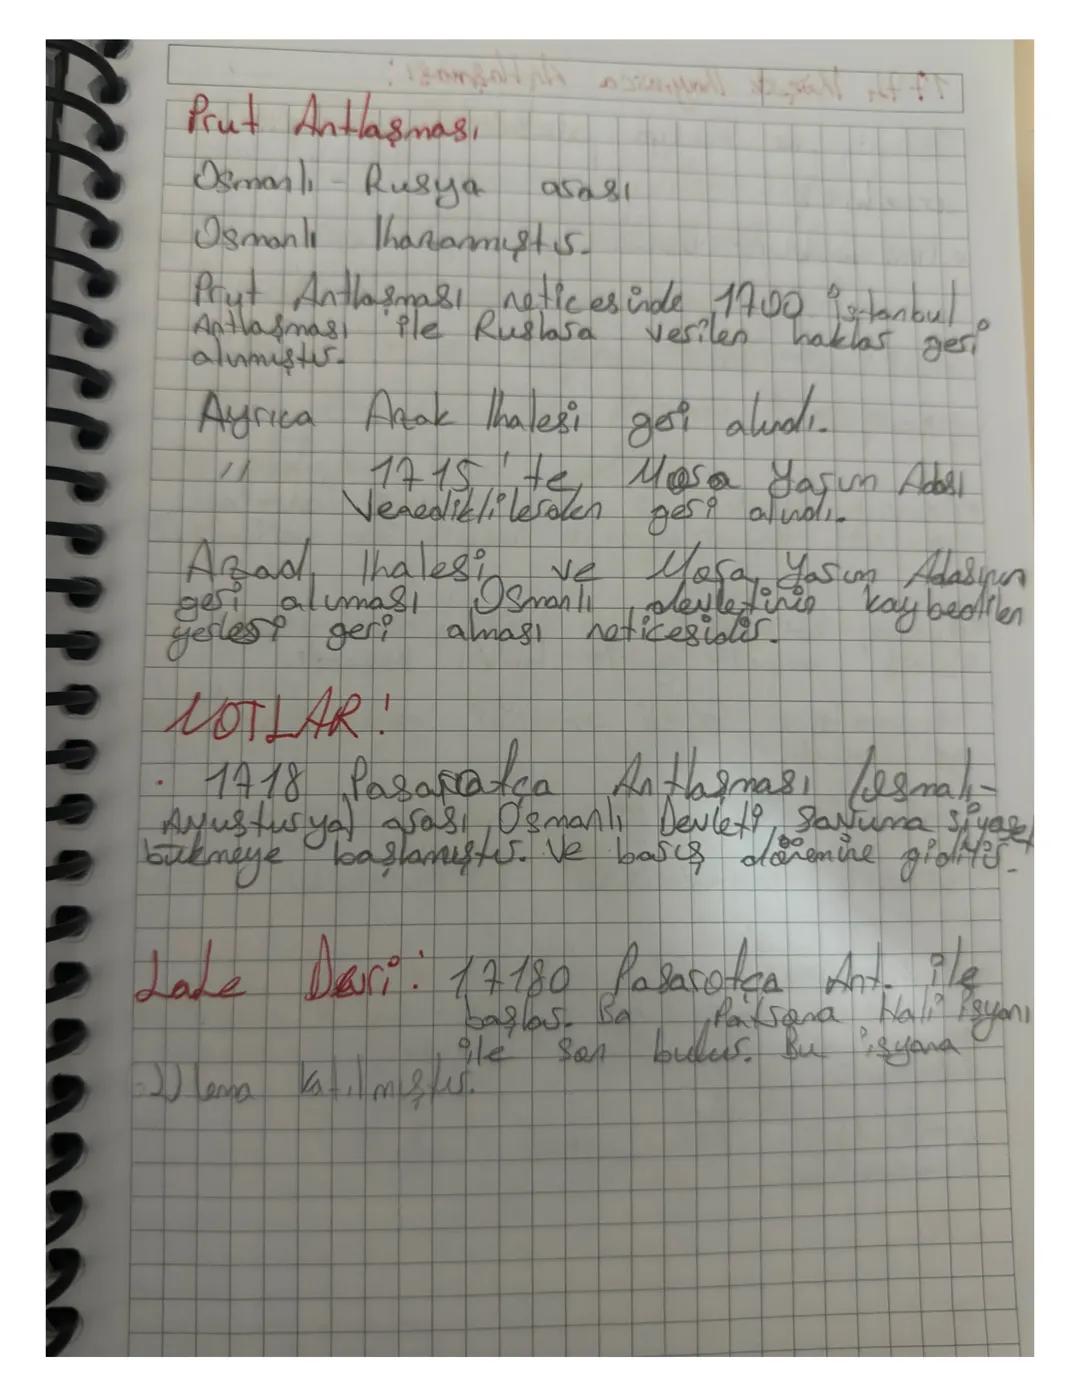 Prut Antlaşması
Osmanlı - Rusya arası
Osmanlı kazanmıştır.
Prut Antlaşması neticesinde 1700 İstanbul
Antlaşması ile Ruslara verilen haklar geri
alınmıştır.
Ayrıca Azak kalesi geri alındı.
" 1715'te Mora Yarım Adası
Venediklilerden geri alındı.
Azad kalesi ve Mora Yarım Adasının
geri alıması Osmanlı devletinin kaybedilen
yerleri geri alması neticesidir.
NOTLAR!
. 1718 Pasarofça Antlaşması (Osmalı-
Avusturya) arası Osmanlı Devleti savuma siyaseti
bükmeye başlamıştır. Ve barış dönemine gidilir.
Lale Devri: 17180 Pasarofça Ant. ile
başlar. Patrona Hali isyanı
ile son bulur. Bu isyana
Ulema katılmıştır.